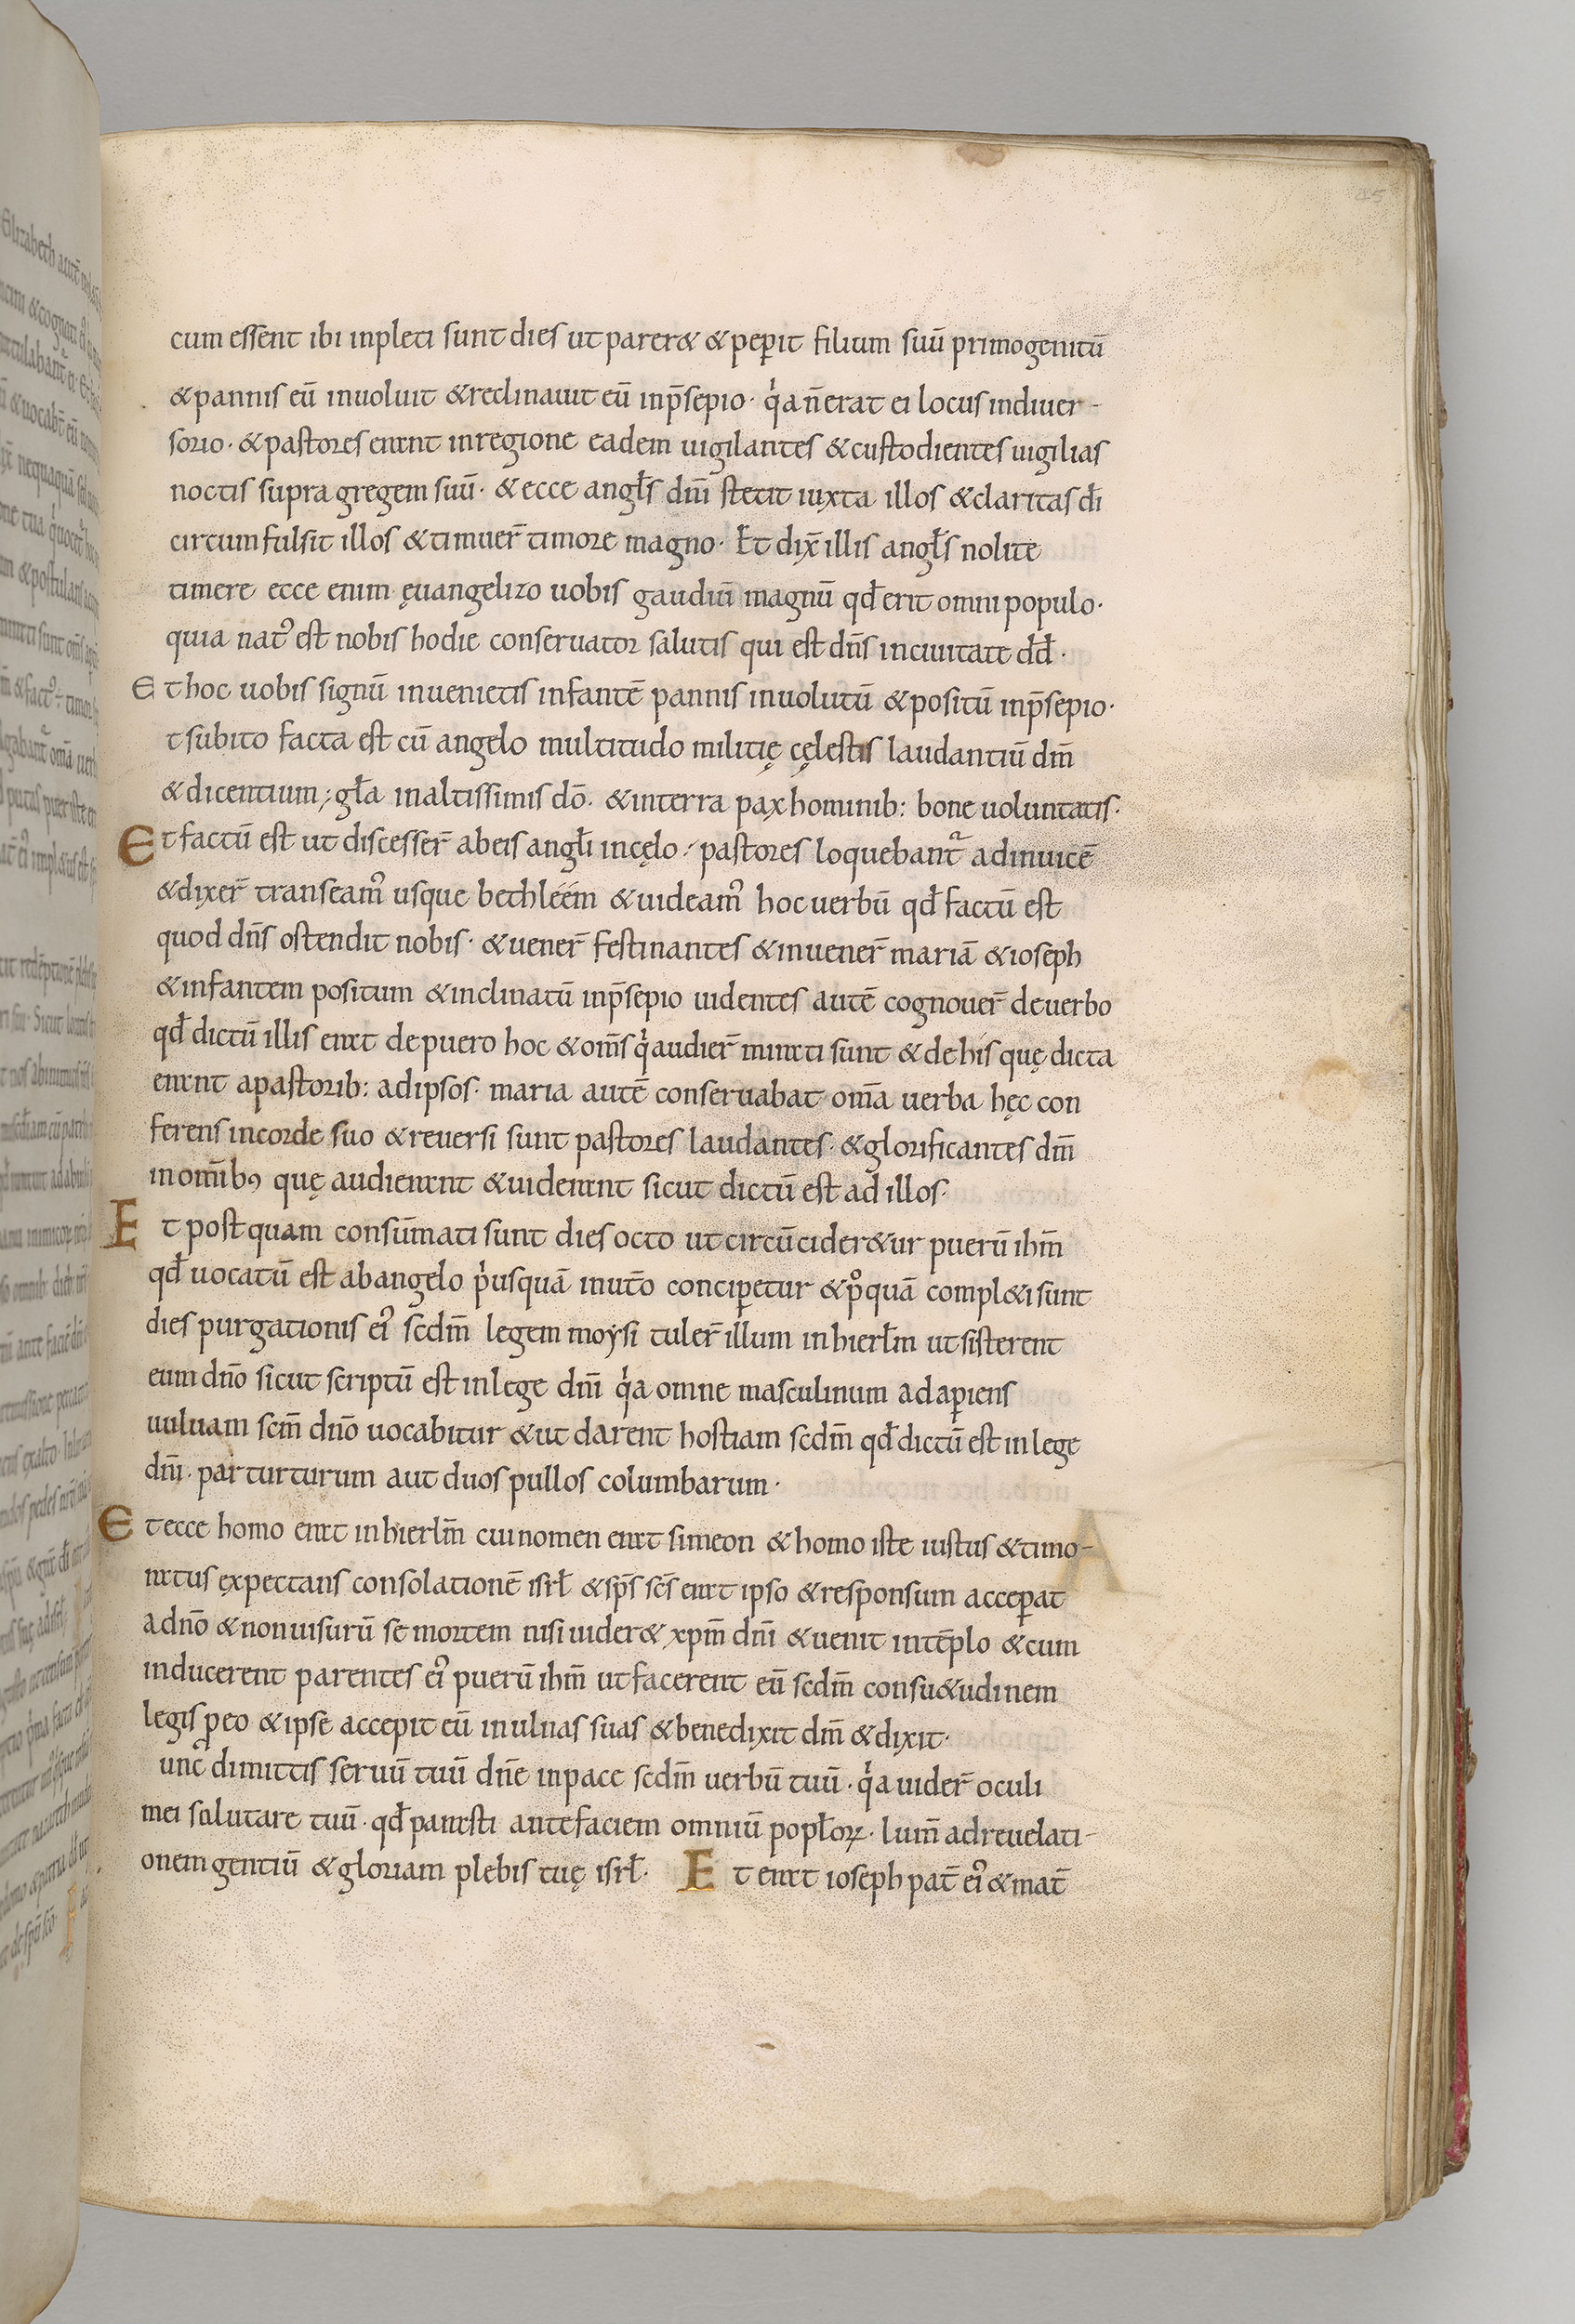 cum essent ibi inpleti sunt dies ut parer& & peꝑit filium suū primogenitū
& pannis eū inuoluit & reclinauit eū inp̄sepio · qͥa n̄ erat ei locus indiuer-
sorio · & pastores erant inregione eadem uigilantes & custodientes uigilias
noctis supra gregem suū · & ecce angl̄s dn̄i stetit iuxta illos & claritas dī
circumfulsit illos & timuer̄ timore magno · Et dix̄ illis angl̄s nolite
timere ecce enim ęuangelizo uobis gaudiū magnū qd̄ erit omni populo ·
quia natꝰ est nobis hodie conseruator salutis qui est dn̄s inciuitate dd̄ ·
Et hoc uobis signū inuenietis infantē pannis inuolutū & positū inp̄sepio ·
t subito facta est cū angelo multitudo militię cęlestis laudantiū dm̄
& dicentium ; gl̄a inaltissimis dō · & interra pax hominib: bone uoluntatis ·
Et factū est ut discesser̄ abeis angl̄i incęlo ; pastores loquebant̄ᵃ adinuicē
& dixer̄ transeamꝰ usque bethléém & uideamꝰ hoc uerbū qd̄ factū est
quod dn̄s ostendit nobis · & uener̄ festinantes & inuener̄ mariā & ioseph
& infantem positum & inclinatū inp̄sepio uidentes autē cognouer̄ deuerbo
qd̄ dictū illis erat depuero hoc & om̄s qͥ audier̄ mirati sunt & de his quę dicta
erant apastorib: adipsos · maria autē conseruabat om̄a uerba hęc con
ferens incorde suo & reuersi sunt pastores laudantes · & glorificantes dm̄
inom̄ibꝯ quę audierant & uiderant sicut dictū est ad illos ·
Et postquam consūmati sunt dies octo ut circūcider&ur puerū ihm̄
qd̄ uocatū est abangelo pͥusquā inut̄o conciꝑetur & pͦquā compl&i sunt
dies purgationis eiꝰ scdm̄ legem moẏsi tuler̄ illum inhierl̄m ut sisterent
eum dn̄o sicut scriptū est inlege dn̄i qͥa omne masculinum adaꝑiens
uuluam scm̄ dn̄o uocabitur & ut darent hostiam scdm̄ qd̄ dictū est inlege
dn̄i · par turturum aut duos pullos columbarum ·
Et ecce homo erat inhierl̄m cui nomen erat simeon & homo iste iustus & timo-
ratus ęxpectans consolationē isrl̄ & sp̄s sc̄s erat ipso & responsum acceꝑat
adn̄o & non uisurū se mortem nisi uider& xpm̄ dn̄i & uenit intēplo & cum
inducerent parentes eiꝰ puerū ihm̄ ut facerent eū scdm̄ consu&udinem
legis ꝓeo & ipse accepit eū inulnas suas & benedixit dm̄ & dixit ·
unc̄ dimittis seruū tuū dn̄e inpace scdm̄ uerbū tuū · qͥa uider̄ oculi
mei salutare tuū · qd̄ parasti antefaciem omniū popl̄oꝝ · lum̄ adreuelati-
onem gentiū & gloriam plebis tuę isrl̄ · Et erat ioseph pat̄ eiꝰ & mat̄